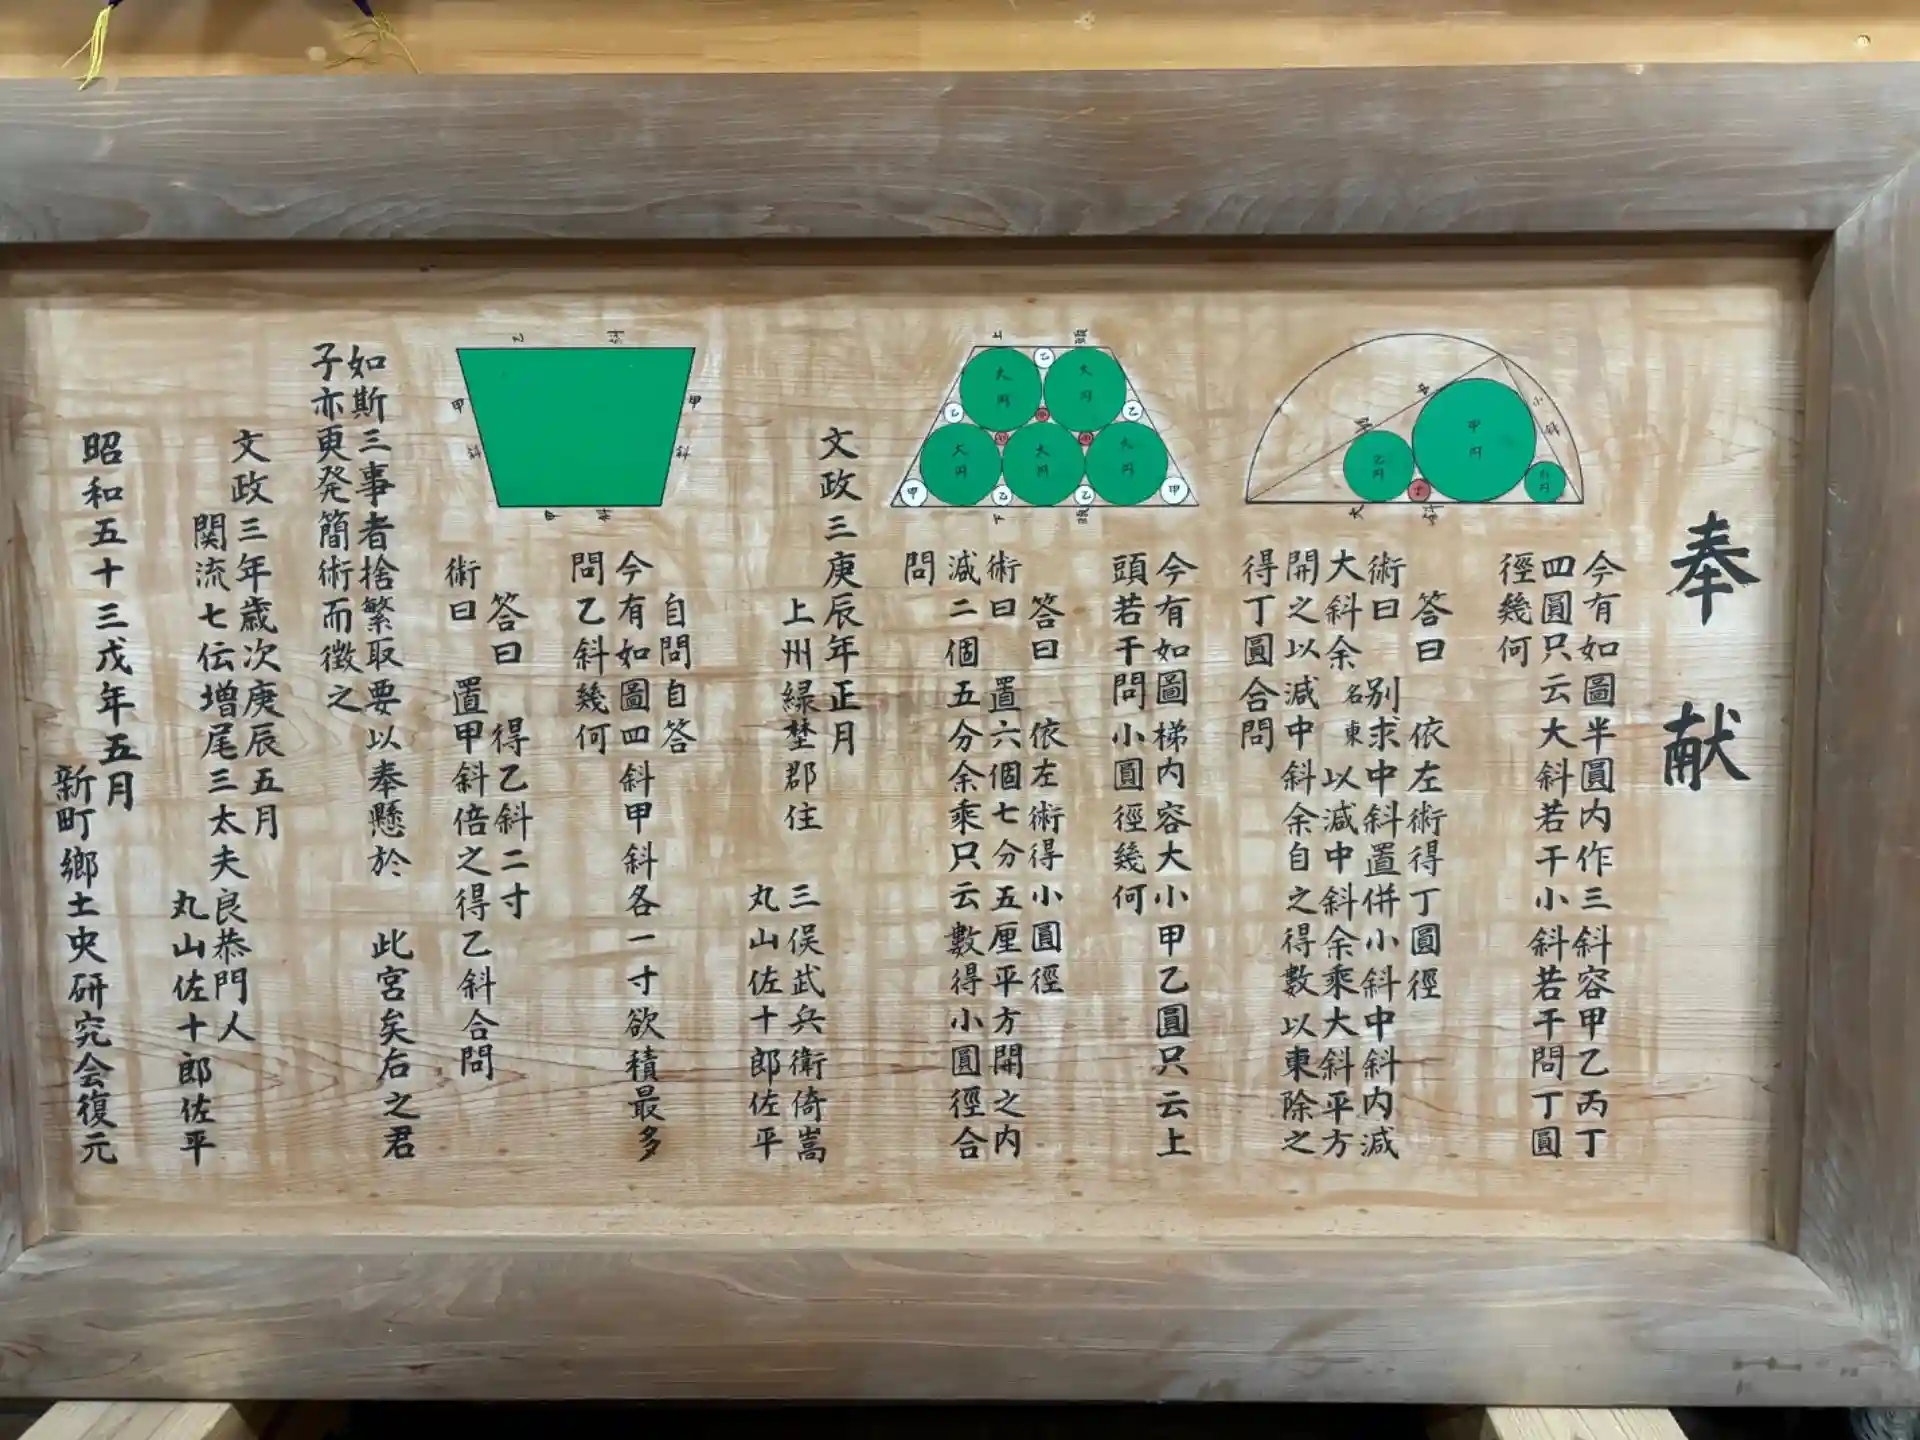 奉献
今有如圖半圓内作三斜容甲乙丙丁
四圓只云大斜若干小斜若干問丁圓
徑幾何
答曰 依左術得丁圓徑
術曰 别求中斜置併小斜中斜内減
大斜余名東以減中斜余乘大斜平方
開之以減中斜余自之得數以東除之
得丁圓合問
甲円
乙円
丁
中
斜
小
斜
大
斜
今有如圖梯内容大小甲乙圓只云上
頭若干問小圓徑幾何
答曰 依左術得小圓徑
術曰 置六個七分五厘平方開之内
減二個五分余乘只云數得小圓徑合
問
上
頭
大円
大円
大円
大円
大円
乙
乙
乙
乙
乙
甲
甲
下
頭
文政三庚辰年正月
上州緑埜郡住
三俣武兵衛倚嵩
丸山佐十郎佐平
自問自答
今有如圖四斜甲斜各一寸欲積最多
問乙斜幾何
答曰 得乙斜二寸
術曰 置甲斜倍之得乙斜合問
乙
斜
甲
斜
甲
斜
甲
斜
如斯三事者捨繁取要以奉懸於 此宮矣后之君
子亦更発簡術而徴之
文政三年歳次庚辰五月
関流七伝増尾三太夫良恭門人
丸山佐十郎佐平
昭和五十三戊年五月
新町鄉土史研究会復元